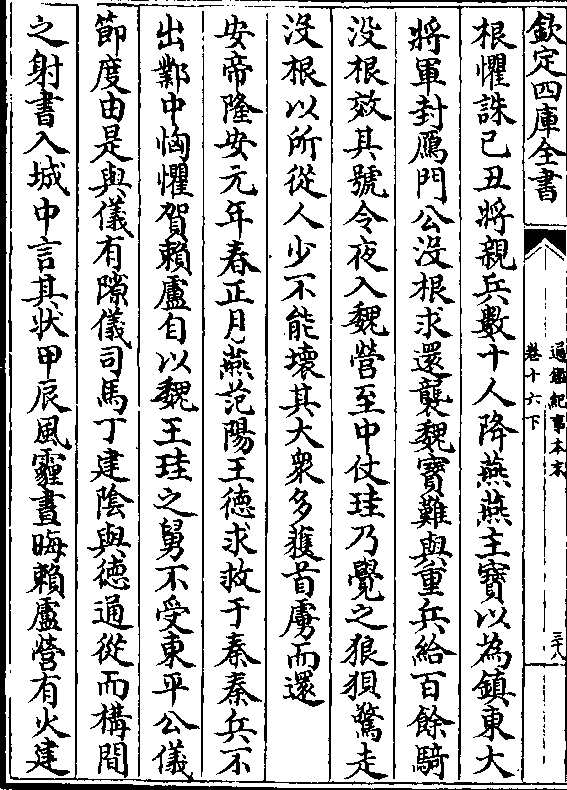 欽定四庫全書
通鑑紀事本末
卷十六下
三十八
根懼誅己丑將親兵數十人降燕燕主寶以為鎮東大
將軍封鴈門公沒根求還襲魏寶難與重兵給百餘騎
沒根效其號令夜入魏營至中仗珪乃覺之狼狽驚走
沒根以所從人少不能壞其大衆多獲首虜而還
安帝隆安元年春正月燕范陽王德求救于秦秦兵不
出鄴中恟懼賀賴盧自以魏王珪之舅不受東平公儀
節度由是與儀有隙儀司馬丁建陰與德通從而構間
之射書入城中言其狀甲辰風霾晝晦賴盧營有火建